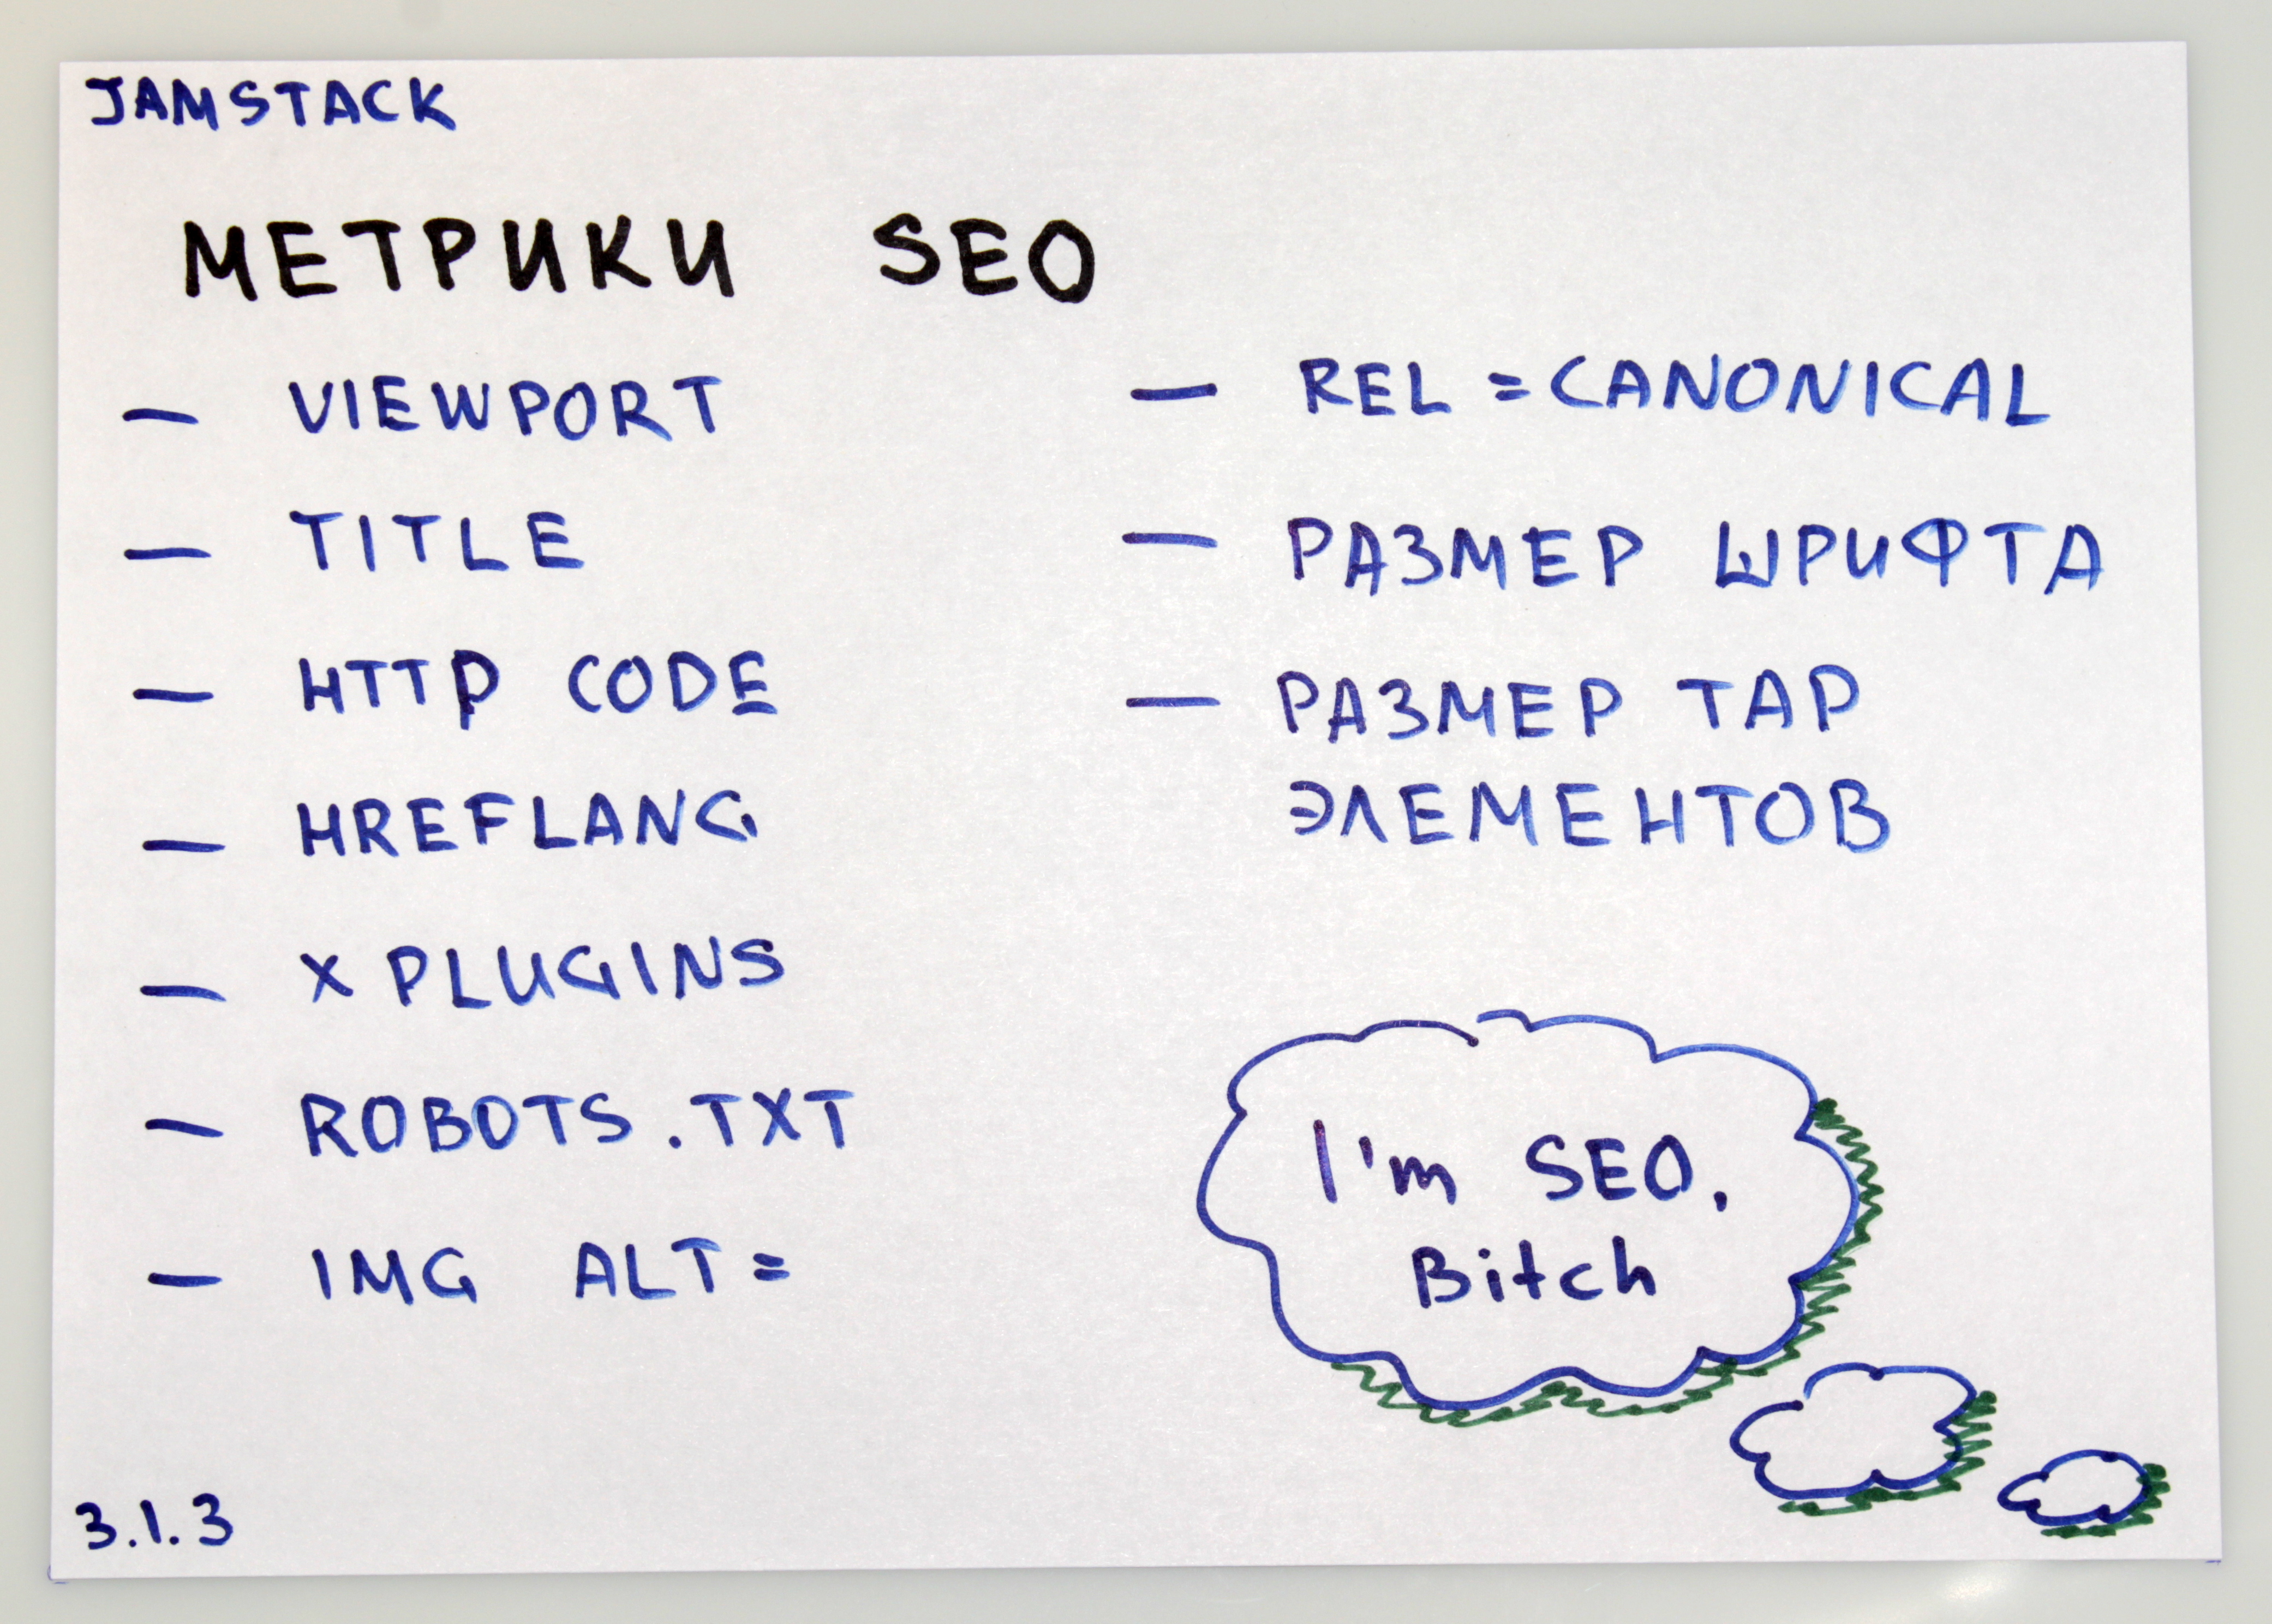 JAMSTACK
МЕТРИКИ SEO
– VIEWPORT
– TITLE
– HTTP CODE
– HREFLANG
– X PLUGINS
– ROBOTS.TXT
– IMG ALT=
– REL =CANONICAL
– РАЗМЕР ШРИФТА
– РАЗМЕР TAP
ЭЛЕМЕНТОВ
I'm SEO,
Bitch
3.1.3